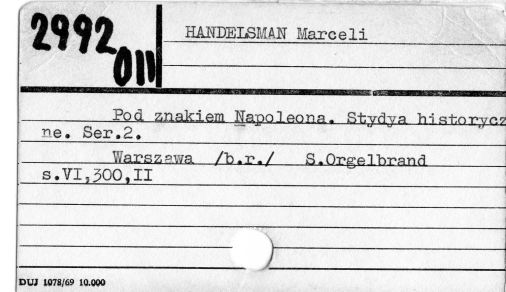 2992
011
HANDELSMAN Marceli
Pod znakiem Napoleona. Stydya historycz
ne. Ser.2.
Warszawa /b.r./ S.Orgelbrand
s.VI,300,II
DUJ 1078/69 10.000